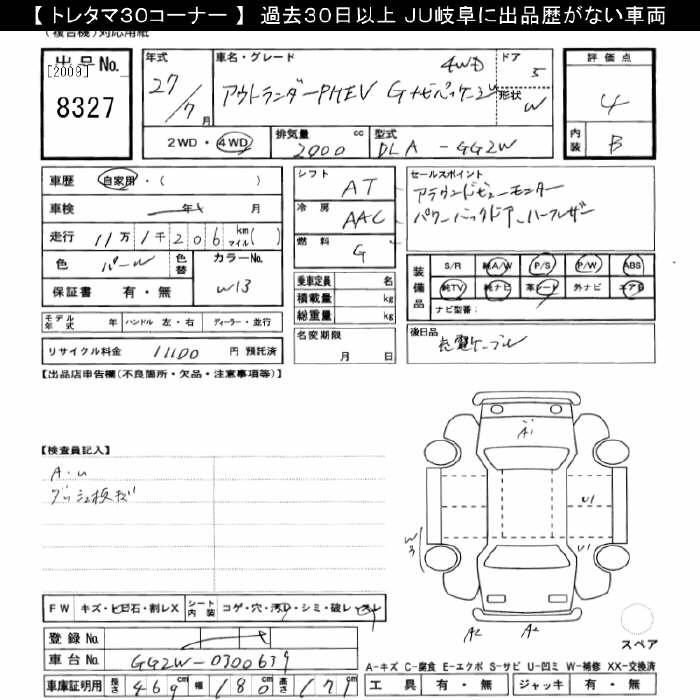 【 トレタマ30コーナー 】 過去30日以上 JU岐阜に出品歴がない車両
(複合機)対応用紙
出品No.
[2009]
8327
年式
27/7月
車名・グレード
アウトランダーPHEV Gナビパッケージ
4WD
ドア
5
形状
W
2WD・4WD
排気量 cc
2000
型式
DLA - GG2W
評価点
4
内装
B
車歴 自家用・( )
車検 年 月
走行 11万1千206 km マイル( )
色 パール 色替
カラーNo.
W13
保証書 有・無
モデル年式 年 ハンドル 左・右 ディーラー・並行
リサイクル料金 11100 円 預託済
シフト AT
冷房 AAC
燃料 G
乗車定員 名
積載量 kg
総重量 kg
名変期限
月 日
セールスポイント
アラウンドビューモニター
パワーバックドア、ハーフレザー
装備品
S/R 純A/W P/S P/W ABS
純TV 純ナビ 革シート 外ナビ エアB
ナビ型番:
後日品
充電ケーブル
【出品店申告欄(不良箇所・欠品・注意事項等)】
【検査員記入】
A・U
ダッシュ板キズ
A1
U1
U1
W3
A2
A2
FW キズ・ヒ日石・割レX シート内装 コゲ・穴・汚レ・シミ・破レ・スレ
登録No.
車台No. GG2W-0300639
車庫証明用 長さ 469cm 幅 180cm 高さ 171cm
スペア
A-キズ C-腐食 E-エクボ S-サビ U-凹ミ W-補修 XX-交換済
工具 有・無 ジャッキ 有・無